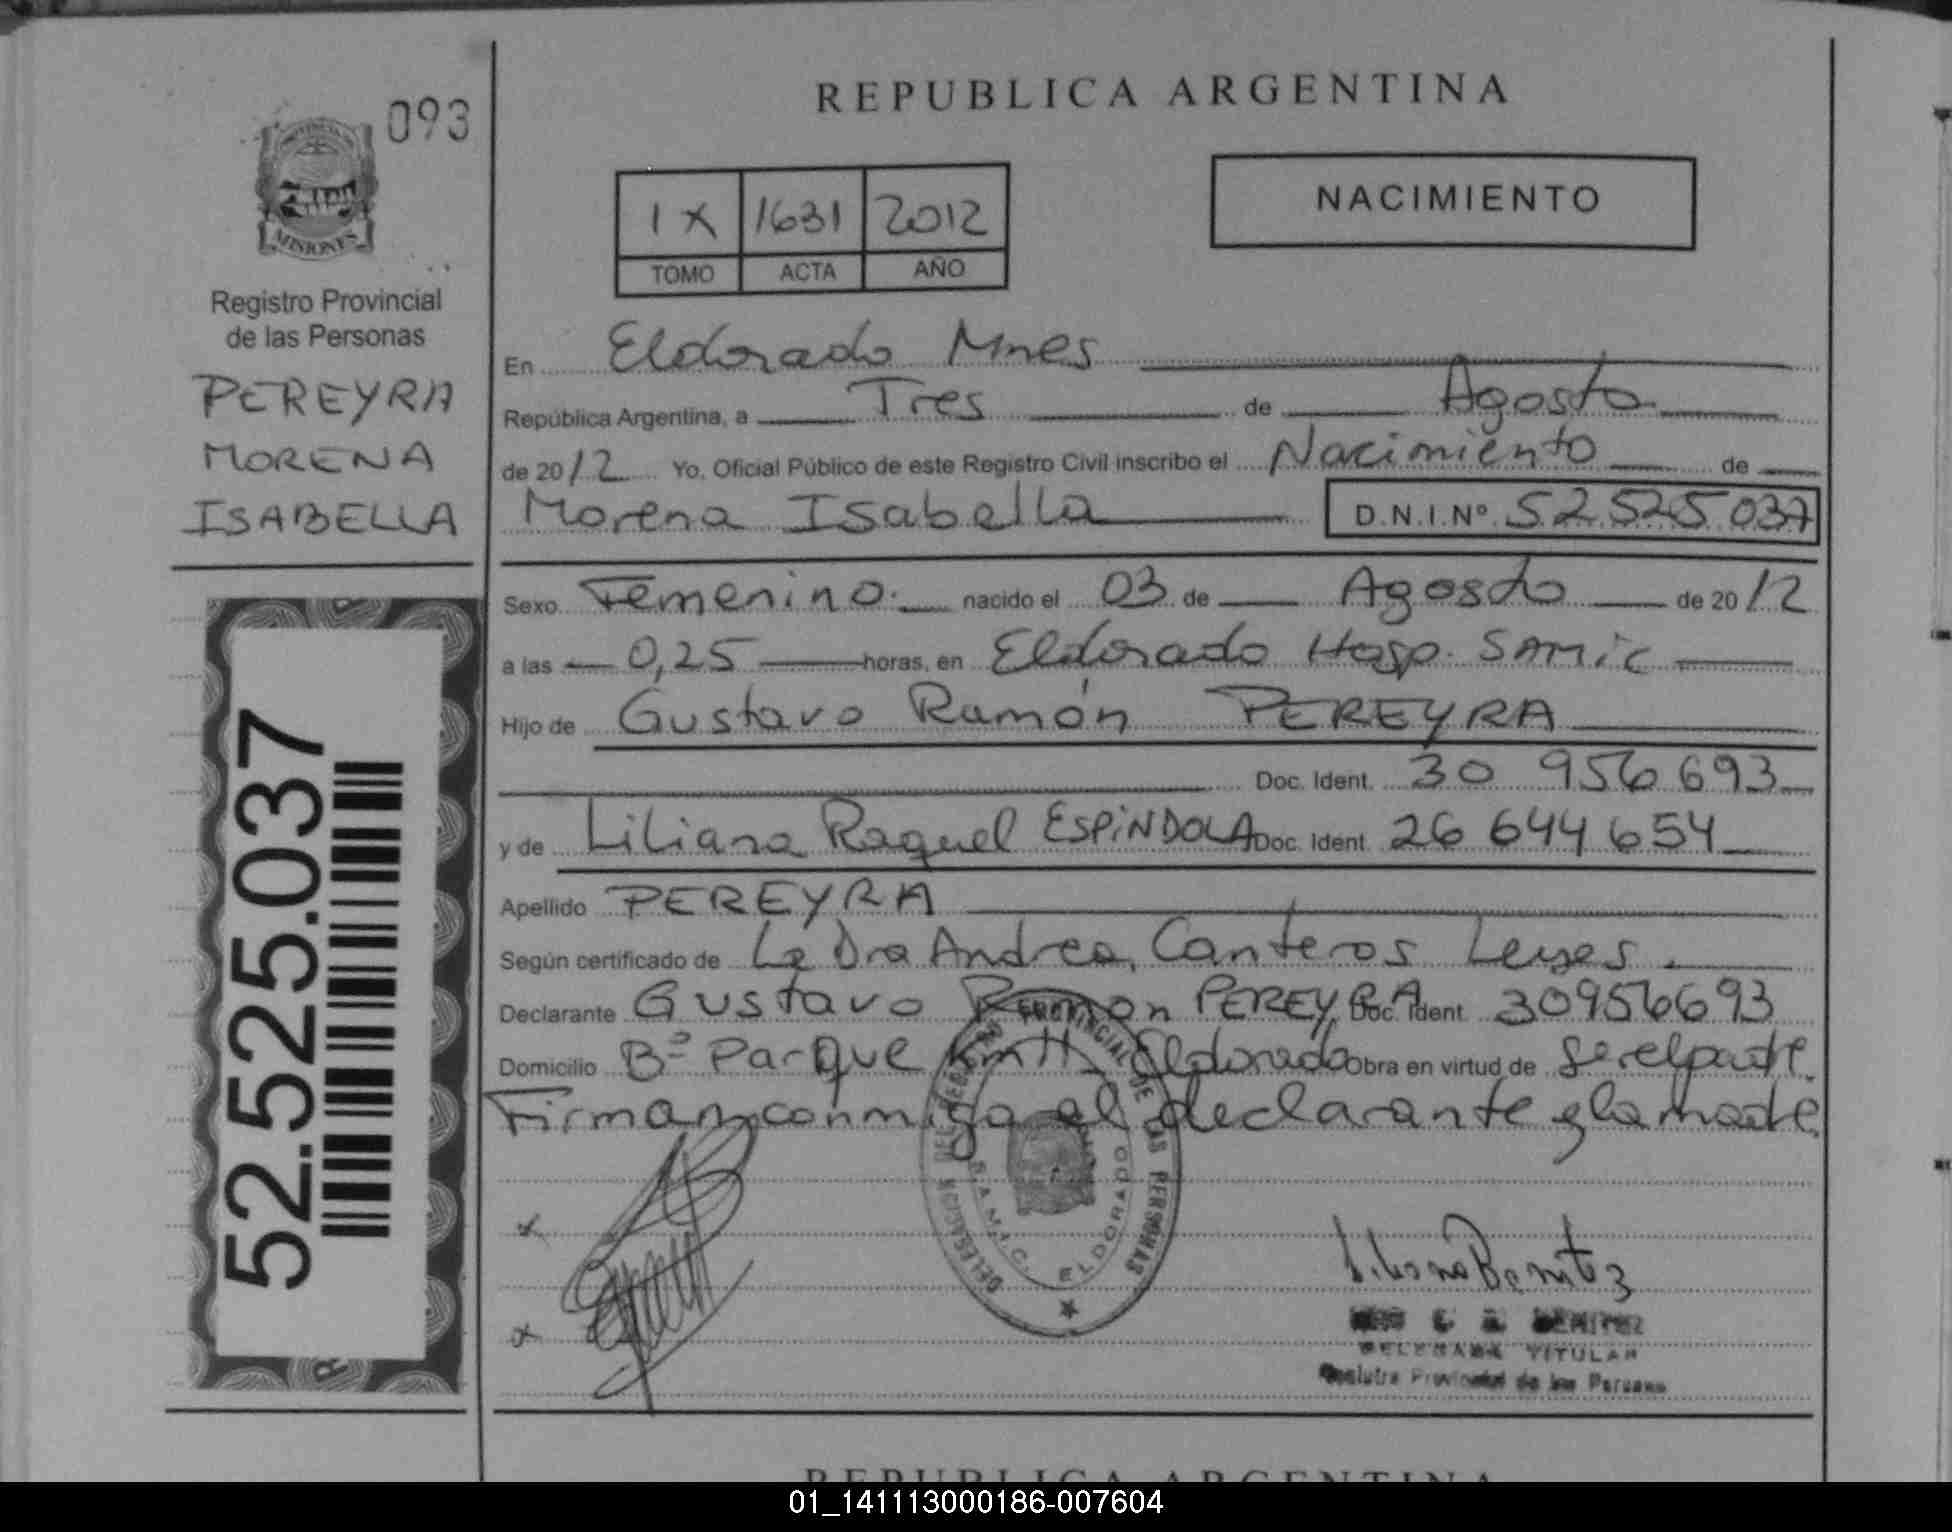 REPUBLICA ARGENTINA
093
PROVINCIA DE MISIONES
Registro Provincial
de las Personas
PEREYRA
MORENA
ISABELLA
52.525.037
IX 1631 2012
TOMO ACTA AÑO
NACIMIENTO
En Eldorado Mnes
República Argentina, a Tres de Agosto
de 2012 Yo, Oficial Público de este Registro Civil inscribo el Nacimiento de
Morena Isabella D.N.I.Nº 52 525 037
Sexo Femenino. nacido el 03 de Agosto de 2012
a las 0,25 horas, en Eldorado Hosp. SAMic
Hijo de Gustavo Ramón PEREYRA
Doc. Ident. 30 956 693
y de Liliana Raquel ESPINDOLA Doc. Ident 26 644 654
Apellido PEREYRA
Según certificado de La Dra Andrea Canteros Leyes.
Declarante Gustavo Ramon PEREYRA Doc. Ident 30956693
Domicilio Bº Parque Km 11 Eldorado Obra en virtud de Ser el padre.
Firman conmigo el declarante y la madre
DELEGACION DEL REGISTRO PROVINCIAL DE LAS PERSONAS
S.A.M.I.C. ELDORADO
BENITEZ
DELEGADA TITULAR
Registro Provincial de las Personas
REPUBLICA ARGENTINA
01_141113000186-007604